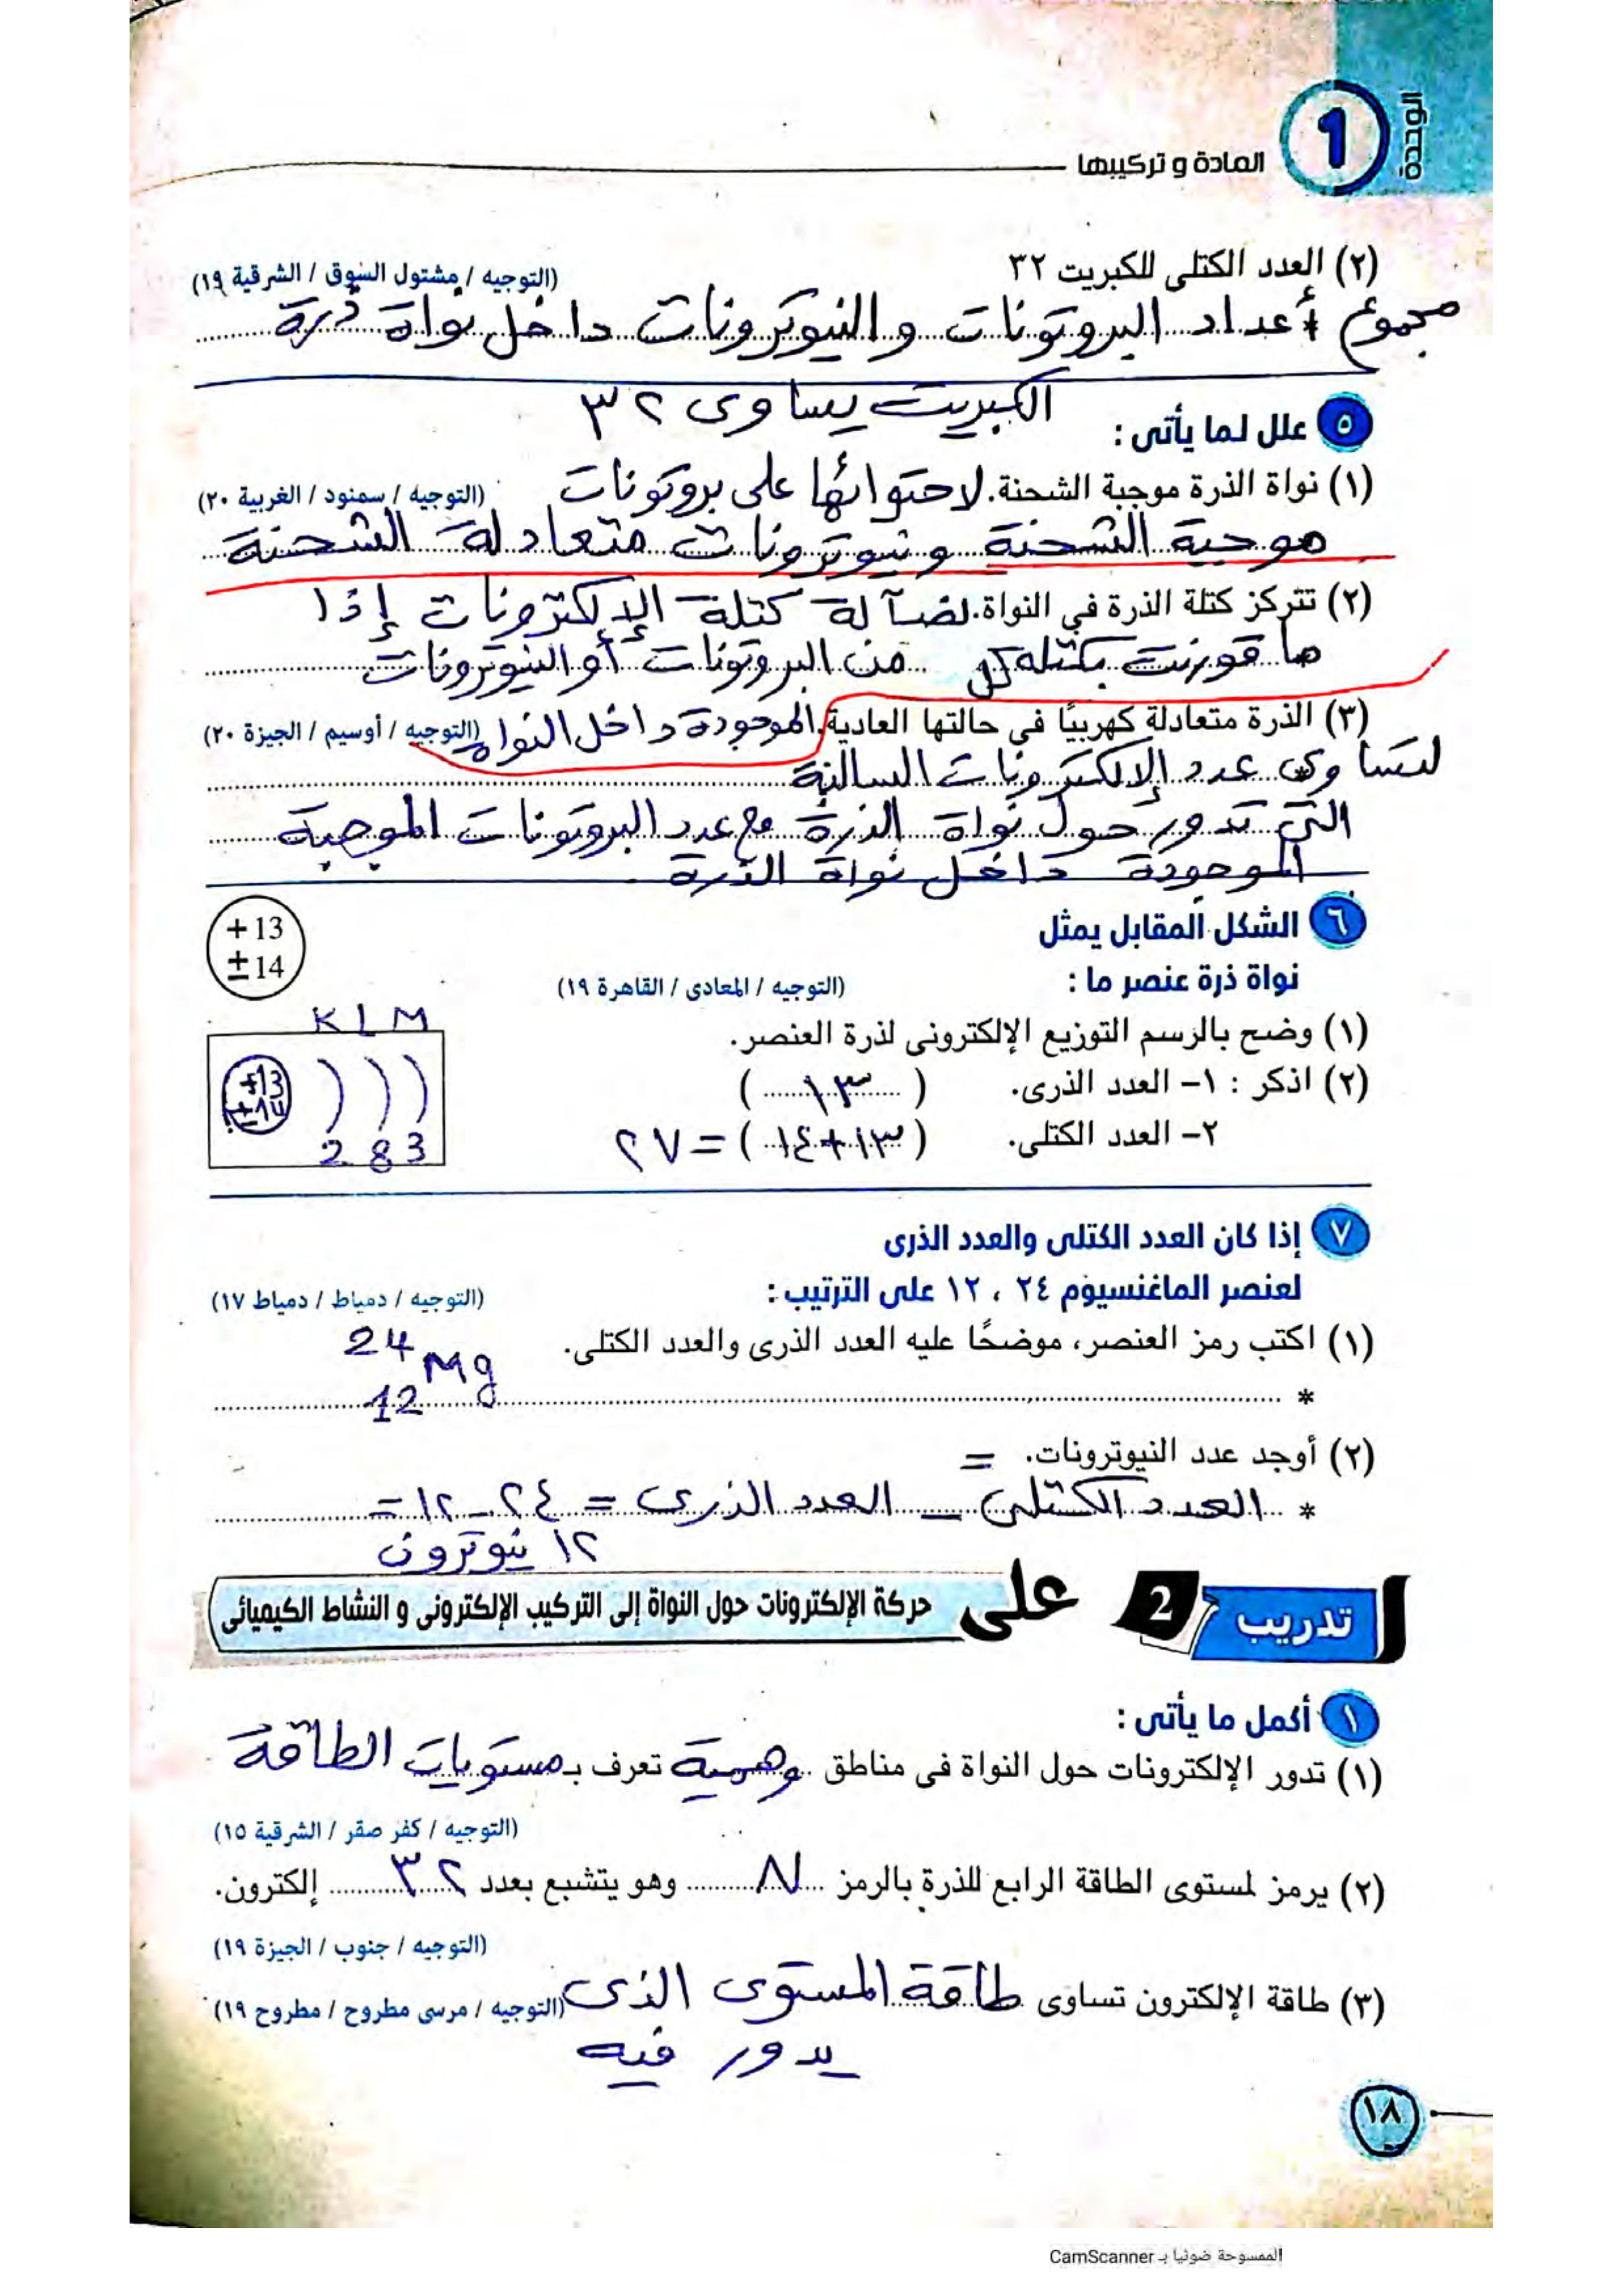 الوحدة
1
المادة و تركيبها
(٢) العدد الكتلى للكبريت ٣٢
(التوجيه / مشتول السوق / الشرقية ١٩)
مجموع أعداد البروتونات والنيوترونات داخل نواة ذرة
الكبريت يساوى ٣٢
٥ علل لما يأتى :
(١) نواة الذرة موجبة الشحنة. لاحتوائها على بروتونات
(التوجيه / سمنود / الغربية ٢٠)
موجبة الشحنة ونيوترونات متعادلة الشحنة
(٢) تتركز كتلة الذرة في النواة. لضآلة كتلة الإلكترونات إذا
ما قورنت بكتله كل من البروتونات أو النيوترونات
(٣) الذرة متعادلة كهربيًا في حالتها العادية. الموجودة داخل النواه
(التوجيه / أوسيم / الجيزة ٢٠)
لتساوى عدد الإلكترونات السالبة
التى تدور حول نواة الذرة مع عدد البروتونات الموجبة
الموجودة داخل نواة الذرة.
٦ الشكل المقابل يمثل
نواة ذرة عنصر ما :
(التوجيه / المعادى / القاهرة ١٩)
+13
±14
(١) وضح بالرسم التوزيع الإلكترونى لذرة العنصر.
K L M
+13
±14
2 8 3
(٢) اذكر : ١- العدد الذرى. (١٣)
٢- العدد الكتلى. (١٣+١٤) = ٢٧
٧ إذا كان العدد الكتلى والعدد الذرى
لعنصر الماغنسيوم ٢٤ ، ١٢ على الترتيب :
(التوجيه / دمياط / دمياط ١٧)
(١) اكتب رمز العنصر، موضحًا عليه العدد الذرى والعدد الكتلى.
24
Mg
12
*
(٢) أوجد عدد النيوترونات. =
* العدد الكتلى – العدد الذرى = ٢٤ – ١٢ =
١٢ نيوترون
تدريب 2 على حركة الإلكترونات حول النواة إلى التركيب الإلكترونى و النشاط الكيميائى
١ أكمل ما يأتى :
(١) تدور الإلكترونات حول النواة فى مناطق وهمية تعرف بـ مستويات الطاقة
(التوجيه / كفر صقر / الشرقية ١٥)
(٢) يرمز لمستوى الطاقة الرابع للذرة بالرمز N وهو يتشبع بعدد ٣٢ إلكترون.
(التوجيه / جنوب / الجيزة ١٩)
(٣) طاقة الإلكترون تساوى طاقة المستوى الذى
(التوجيه / مرسى مطروح / مطروح ١٩)
يدور فيه
١٨
الممسوحة ضوئيا بـ CamScanner